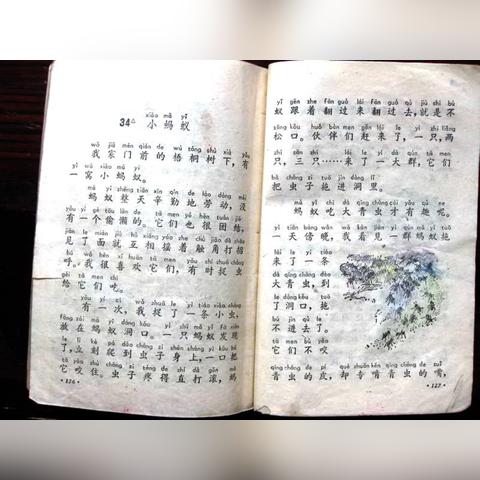 xiǎo mǎ yǐ
34△ 小蚂蚁
wǒ jiā mén qián de wú tóng shù xià yǒu
我家门前的梧桐树下，有
yī wō xiǎo mǎ yǐ
一窝小蚂蚁。
mǎ yǐ zhěng tiān xīn qín de láo dòng méi
蚂蚁整天辛勤地劳动，没
yǒu yī gè tōu lǎn de tā men yě hěn tuán jié
有一个偷懒的。它们也很团结，
jiàn le miàn jiù hù xiāng pèng zhe chù jiǎo dǎ zhāo
见了面就互相碰着触角打招
hu wǒ hěn xǐ huan tā men yǒu shí zhuō chóng
呼。我很喜欢它们，有时捉虫
gěi tā men chī
给它们吃。
yǒu yī cì wǒ zhuō le yī tiáo xiǎo chóng
有一次，我捉了一条小虫，
放在蚂蚁洞口。一只蚂蚁发现
了，立刻爬到虫子身上，一口把
它咬住。虫子疼得直打滚，蚂
·126·
yǐ gēn zhe fān guò lái fān guò qù jiù shì bù
蚁跟着翻过来翻过去，就是不
sōng kǒu huǒ bàn men gǎn lái le yī zhī liǎng
松口。伙伴们赶来了，一只，两
zhī sān zhī lái le yī dà qún tā men
只，三只……来了一大群，它们
bǎ chóng zi tuō jìn dòng lǐ
把虫子拖进洞里。
mǎ yǐ chī dà qīng chóng cái yǒu qù ne
蚂蚁吃大青虫才有趣呢。
yī tiān bàng wǎn wǒ kàn jiàn yī qún mǎ yǐ tuō
一天傍晚，我看见一群蚂蚁拖
lái le yī tiáo
来了一条
dà qīng chóng dào
大青虫，到
le dòng kǒu tuō
了洞口，拖
bù jìn qù le
不进去了。
tā men bù yǎo
它们不咬
qīng chóng de pí què zhuān kěn qīng chóng de zuǐ
青虫的皮，却专啃青虫的嘴，
·127·